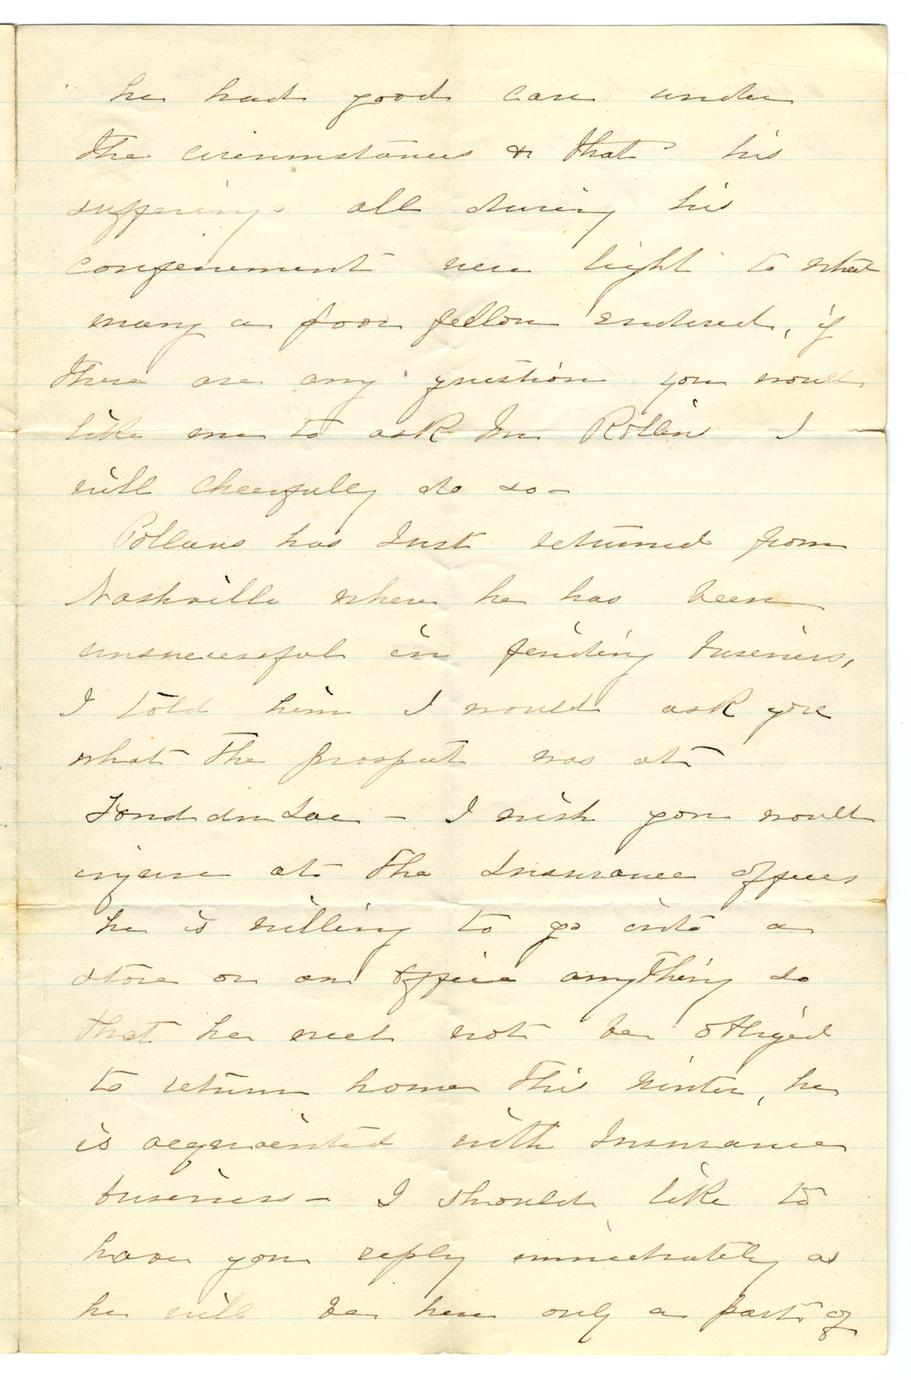 he had good care under
the circumstances & that his
sufferings all during his
confinement were light to what
many a poor fellow endured, if
there are any question you would
like me to ask Mr Rollin I
will cheerfully do so -
has Just returned from
Nashville where he has been
unsuccessful in finding business,
I told him I would ask you
what the prospect was at
Fond du Lac - I wish you would
at the Insurance offices
he is willing to go into a
store or an office anything so
that he need not be obliged
to return home this winter, he
is acquainted with Insurance
business - I should like to
have you reply immediately as
he will be here only a part of